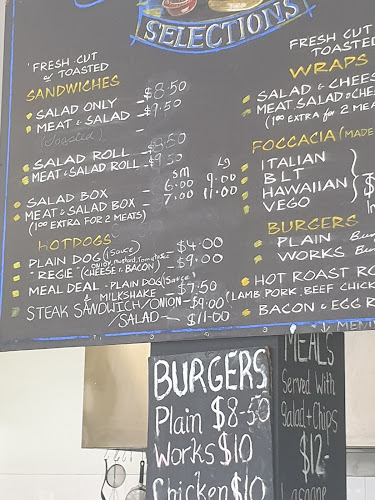 SELECTIONS
FRESH CUT
or TOASTED
SANDWICHES
SALAD ONLY - $8.50
MEAT & SALAD - $9.50
(Toasted)
SALAD ROLL - $8.50
MEAT & SALAD ROLL - $9.50
sm Lg
SALAD BOX - 6.00 9.00
MEAT & SALAD BOX - 7.00 11.00
(1.00 EXTRA FOR 2 MEATS)
HOTDOGS
PLAIN DOG (Sauce) - $4.00
"REGIE" (CHEESE & BACON) - $9.00
MEAL DEAL - PLAIN DOG (Sauce) $7.50
& MILKSHAKE
STEAK SANDWICH/ONION - $9.00
/SALAD - $11.00
FRESH CUT
TOASTED
WRAPS
SALAD & CHEES
MEAT SALAD & CHE
(1.00 EXTRA for 2 MEA
FOCCACIA (MADE
ITALIAN
BLT
HAWAIIAN
VEGO
$
BURGERS
PLAIN
WORKS
HOT ROAST RO
(LAMB PORK, BEEF CHICK
BACON & EGG R
BURGERS
Plain $8-50
Works $10
Chicken $10
MEALS
Served With
Salad + Chips
$12-
Lasagne